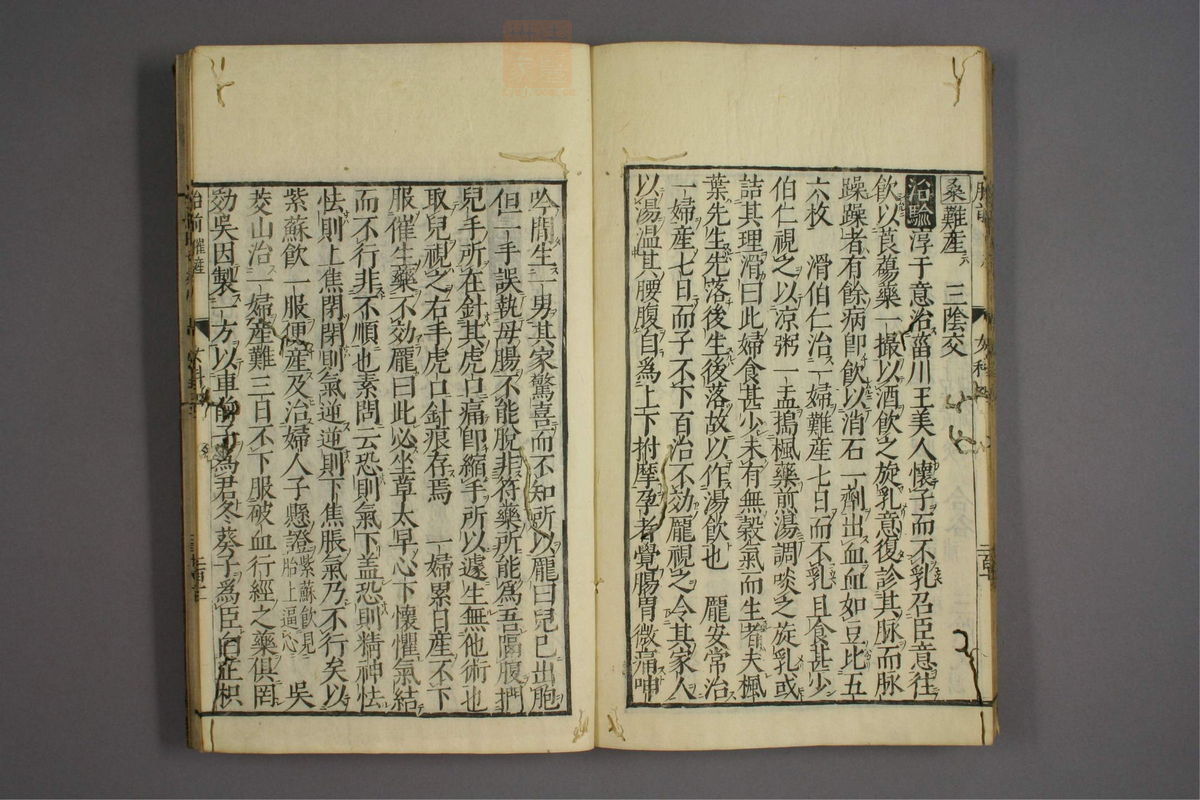 桑難産　三陰交
治驗淳于意治菑川王美人懷子而不乳召臣意往
飲以莨蕩藥一撮以酒飲之旋乳意復診其脉而脉
躁躁者有餘病卽飲以消石一劑出血血如豆比五
六枚　滑伯仁治一婦難産七日而不乳且食甚少
伯仁視之以凉粥一盂搗楓藥煎湯調啖之旋乳或
詰其理滑曰此婦食甚少未有無穀氣而生者夫楓
葉先生先落後生後落故以作湯飲也　龐安常治
一婦産七日而子不下百治不効龐視之令其家人
以湯温其腰腹自爲上下拊摩孕者覺腸胃微痛呻
吟間生一男其家驚喜而不知所以龐曰兒已出胞
但一手誤執母腸不能脫非符藥所能爲吾隔腹捫
兒手所在針其虎口痛卽縮手所以遽生無他術也
取兒視之右手虎口針痕存焉　一婦累日産不下
服催生藥不効龐曰此必坐草太早心下懷懼氣結
而不行非不順也素問云恐則氣下盖恐則精神怯
怯則上焦閉閉則氣逆逆則下焦脹氣乃不行矣以
紫蘇飲一服便産及治婦人子懸證紫蘇飲見胎上逼心　吳
茭山治一婦産難三日不下服破血行經之藥俱罔
効吳因製一方以車前子爲君冬葵子爲臣白芷枳
胎前　催産
女科